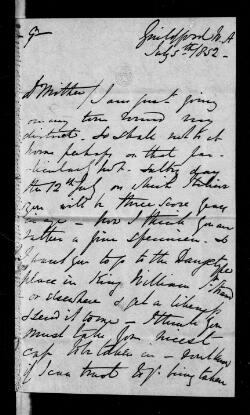 Guildford W. A
July 5th 1852 –
D Mother / I am just going
on my tour round my
district. So shall not be at
home perhaps on that par-
ticular, not - day
the 12th July on which
you will be three score years
of age – now I think you are
rather a fine specimen. So
I want you to go to the Daguerreotype
place in King William Strand
or elsewhere & get a likeness
& send it home – I think you
must take your nicest
cap to be taken in –
if I can trust being taken